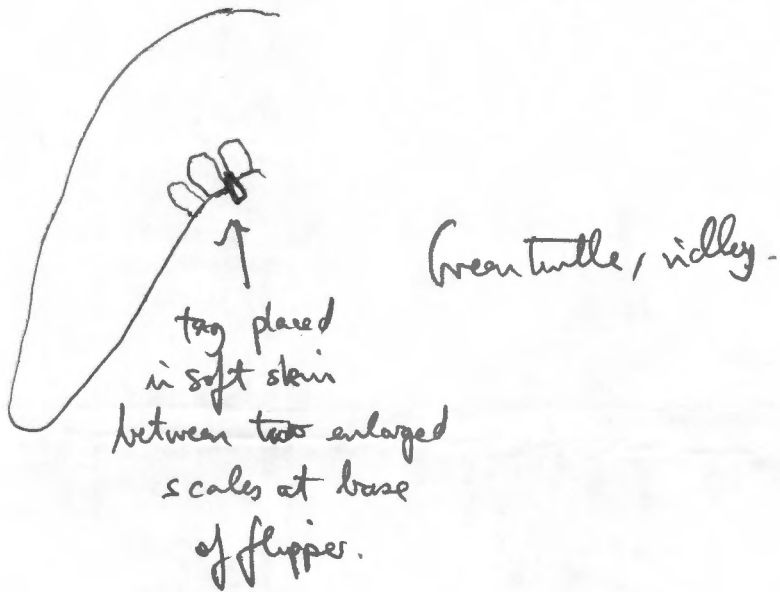 Green turtle, ridley.
tag placed
in soft skin
between two enlarged
scales at base
of flipper.